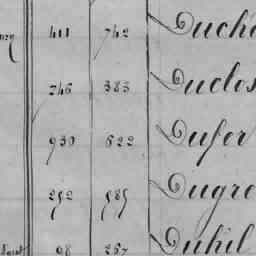 411 742 Ducho
746 383 Duclos
930 622 Dufer
252 585 Dugre
98 257 Duhil